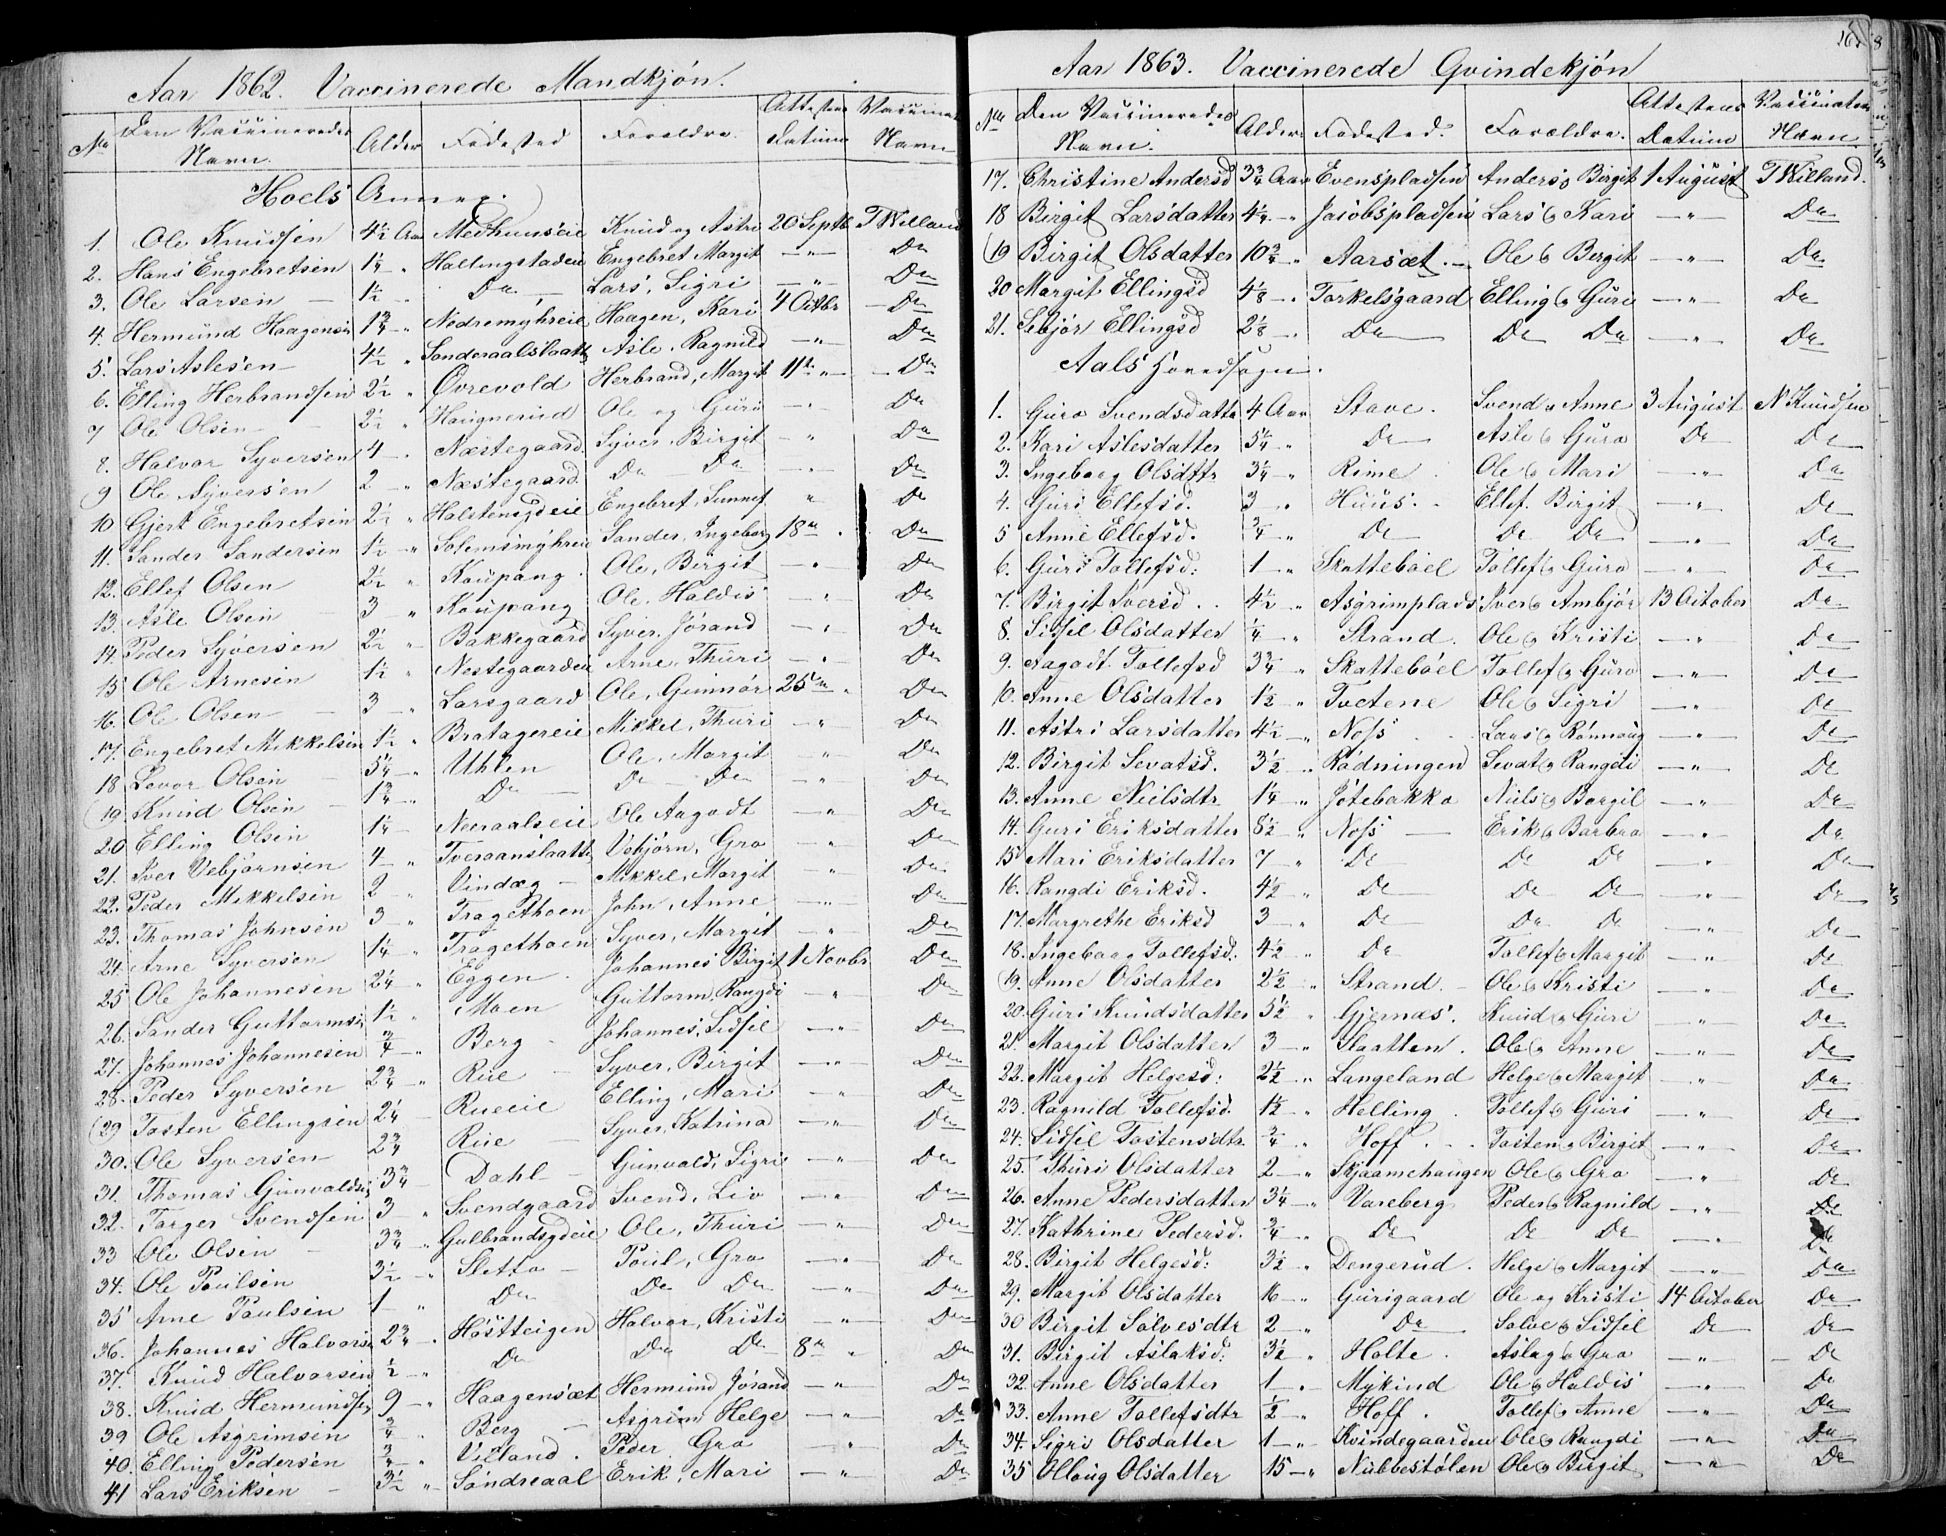 Aar 1862. Vaccinerede Mandkjøn.
No Den Vaccineredes Navn. Alder Fødested Forældre. Attestens Datum Vaccinat Navn
Hoels Annex.
1. Ole Knudsen 4½ Aar Medhuuseie Knud og Astri 20 Septb T Willand
2. Hans Engebretsen 1¼ " Hallingstadeie Engebret Margit —"— Do
3. Ole Larsen — 1½ " Do — Lars, Sigri —"— Do
4. Hermund Haagensen 1¾ " Nedremyhreie Haagen, Kari 4 Octbr Do
5. Lars Aslesen — 4½ " Sonderaalslaatt Asle. Ragnild —"— Do
6. Elling Herbrandsen 2½ " Øvrevold Herbrand, Margit 11te " Do
7 Ole Olsen — 2½ " Haugnerud Ole og Guro —"— Do
8. Halvor Syversen 4 " Næstegaard Syver, Birgit —"— Do
9 Ole Syversen 2 " Næstegaard Do Do —"— Do
10 Gjert Engebretsen 2½ " Halstensgdeie Engebret, Sunnef " Do
11. Sander Sandersen 1½ " Solemsmyhreie Sander, Ingeborg 18de " Do
12. Ellef Olsen 2½ " Kaupang. Ole, Birgit —"— Do
13. Asle Olsen — 3 " Kaupang Ole, Haldis —"— Do
14. Peder Syversen 2½ " Bakkegaard Syver, Jørand —"— Do
15 Ole Arnesen 1½ " Nestegaardeie Arne, Thuri —"— Do
16. Ole Olsen — 3 " Larsgaard Ole, Gunnør 25de " Do
17. Engebret Mikkelsen 1½ " Bratagereie Mikkel, Thuri —"— Do
18 Levor Olsen — 5¼ " Uhlen Ole, Margit " Do
19 Knud Olsen — 1¾ " Do — Do Do —"— Do
20 Elling Olsen 1¼ " Neeraalseie Ole Aagodt —"— Do
21. Iver Vebjørnsen 4 " Tveraanslaatt Vebjørn, Gro —"— Do
22. Peder Mikkelsen 2 " Vindæg — Mikkel, Margit " Do
23. Thomas Johnsen 3 " Tragethoen John, Anne —"— Do
24. Arne Syversen 1¼ " Tragethoen Syver, Margit —"— Do
25 Ole Johannesen 2¼ " Eggen. Johannes Birgit 1 Novbr Do
26. Sander Guttormsen 1½ " Moen Guttorm, Rangdi " Do
27. Johannes Johannesen ¾ " Berg — Johannes, Sidsel —"— Do
28. Peder Syversen 2¾ " Rue — Syver, Birgit —"— Do
29 Tosten Ellingsen 2¼ — Rueeie Elling, Mari —"— Do
30. Ole Syversen 2¾ Rue — Syver, Katrina —"— Do
31. Thomas Gunvaldsen 3¾ — Dahl — Gunvald, Sigri —"— Do
32. Torger Svendsen 3 " Svendgaard Svend, Liv —"— Do
33 Ole Olsen — 3¾ " Gulbrandsgdeie Ole, Thuri —"— Do
34. Ole Paulsen 3½ " Sletto — Poul, Gro —"— Do
35 Arne Paulsen 1 — " Do Do Do —"— Do
36. Johannes Halvorsen 2¾ " Høstteigen Halvor, Kristi —"— Do
37. Knud Halvorsen ½ " Do Do Do 8de " Do
38. Knud Hermundsen 9 — " Haagensæt Hermund Jørand —"— Do
39 Ole Asgrimsen ¾ " Berg — Asgrim Helge —"— Do
40. Elling Pedersen ¾ " Villand. Peder, Gro " Do
41 Lars Eriksen — 3½ " Søndreaal Erik, Mari —"— Do
Aar 1863. Vaccinerede Qvindekjøn
No Den Vaccineredes Navn. Alder. Fødested. Forældre. Attestens Datum Vaccinatens Navn.
17. Christine Andersd 3¾ Aar Evenspladsen Anders, Birgit 1 August T Willand.
18 Birgit Larsdatter 4¼ " Jacobspladsen Lars og Kari —"— Do
19 Birgit Olsdatter 10¾ " Aarsæt. — Ole og Bergit —"— Do
20 Margit Ellingsd 4⅛ " Torkelsgaard Elling og Guri —"— Do
21. Sebjør Ellingsd 2⅛ " Do Do Do —"— Do
Aals Hovedsogn.
1. Guro Svendsdatter 4 Aar Stave. Svend og Anne 3 August N Knudsen
2. Kari Aslesdatter 5¼ " Do Asle og Guro Do Do
3. Ingeborg Olsdttr 3¼ " Rime Ole og Mari —"— Do
4. Guri Ellefsd. 3 " Huus. Ellef. Birgit —"— Do
5 Anne Ellefsd. ¾ " Do Do Do —"— Do
6. Guri Tollefsd: 1 — " Skatteboel Tollef og Guro —"— Do
7. Birgit Iversd.. 4½ " Asgrimplads Iver og Ambjør 13 October Do
8. Sidsel Olsdatter ¼ — " Strand. Ole og Kristi —"— Do
9. Aagodt Tollefsd 3¾ " Skatteboel Tollef og Guro —"— Do
10. Anne Olsdatter 1½ " Tvetene Ole og Sigri —"— Do
11. Astri Larsdatter 4½ " Noss. Lars og Rønnaug —"— Do
12. Birgit Sevatsd. 3½ " Rødningen Sevat og Rangdi —"— Do
13. Anne Nielsdtr 1¼ " Jøtebakko Niels og Borgil —"— Do
14. Guri Eriksdatter 8½ " Noss — Erik og Barbro —"— Do
15 Mari Eriksdatter 7 " Do Do Do —"— Do
16. Rangdi Eriksd. 4½ " Do Do Do —"— Do
17. Margrethe Eriksd 3 " Do Do Do —"— Do
18. Ingeborg Tollefsd. 4½ " Do Tollef og Margit —"— Do
19. Anne Olsdatter 2½ " Strand — Ole og Kristi —"— Do
20. Guri Knudsdatter 5½ " Gjernæs. Knud og Guri —"— Do
21. Margit Olsdatter 3 — " Slaatten. Ole og Anne —"— Do
22. Margit Helgesd: 2½ " Langeland Helge og Margit —"— Do
23. Ragnild Tollefsd. 1½ " Helling. Tollef og Guri —"— Do
24. Sidsel Tostensdtr. ¾ " Hoff.. Tosten og Birgit —"— Do
25. Thuri Olsdatter 2 — " Skjaamehaugen Ole og Gro —"— Do
26. Anne Pedersdatter 3¼ " Vareberg Peder og Ragnild —"— Do
27. Kathrine Pedersd. ¾ " Do Do Do —"— Do
28. Birgit Helgesd: 3½ " Dengerud. Helge og Margit —"— Do
29. Margit Olsdatter 16 — " Gurigaard Ole og Kristi 14 October Do
30 Birgit Solvesdtr 2 — " Do Solve og Sidsel Do Do
31. Birgit Aslaksd: 3½ " Holte. Aslag og Gro —"— Do
32. Anne Olsdatter 1 — " Mykind Ole og Haldis —"— Do
33. Anne Tollefsdtr ½ " Hoff. Tollef og Anne —"— Do
34. Sigri Olsdatter 1 — " Kvindegaarden Ole og Rangdi —"— Do
35 Ollaug Olsdatter 15 — " Nubbestølen Ole og Birgit —"— Do